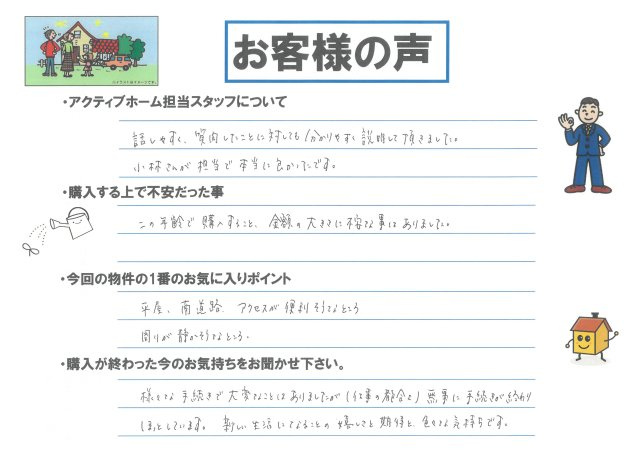 お客様の声
・アクティブホーム担当スタッフについて
話しやすく、質問したことに対しても分かりやすく説明して頂きました。
小林さんが担当で本当に良かったです。
・購入する上で不安だった事
この年齢で購入すること、金額の大きさに不安な事はありました。
・今回の物件の1番のお気に入りポイント
平屋、南道路、アクセスが便利そうなところ
周りが静かそうなところ。
・購入が終わった今のお気持ちをお聞かせ下さい。
様々な手続きで大変なことはありましたが(仕事の都合で)無事に手続きが終わり
ほっとしています。新しい生活になることの嬉しさと期待と色々な気持ちです。